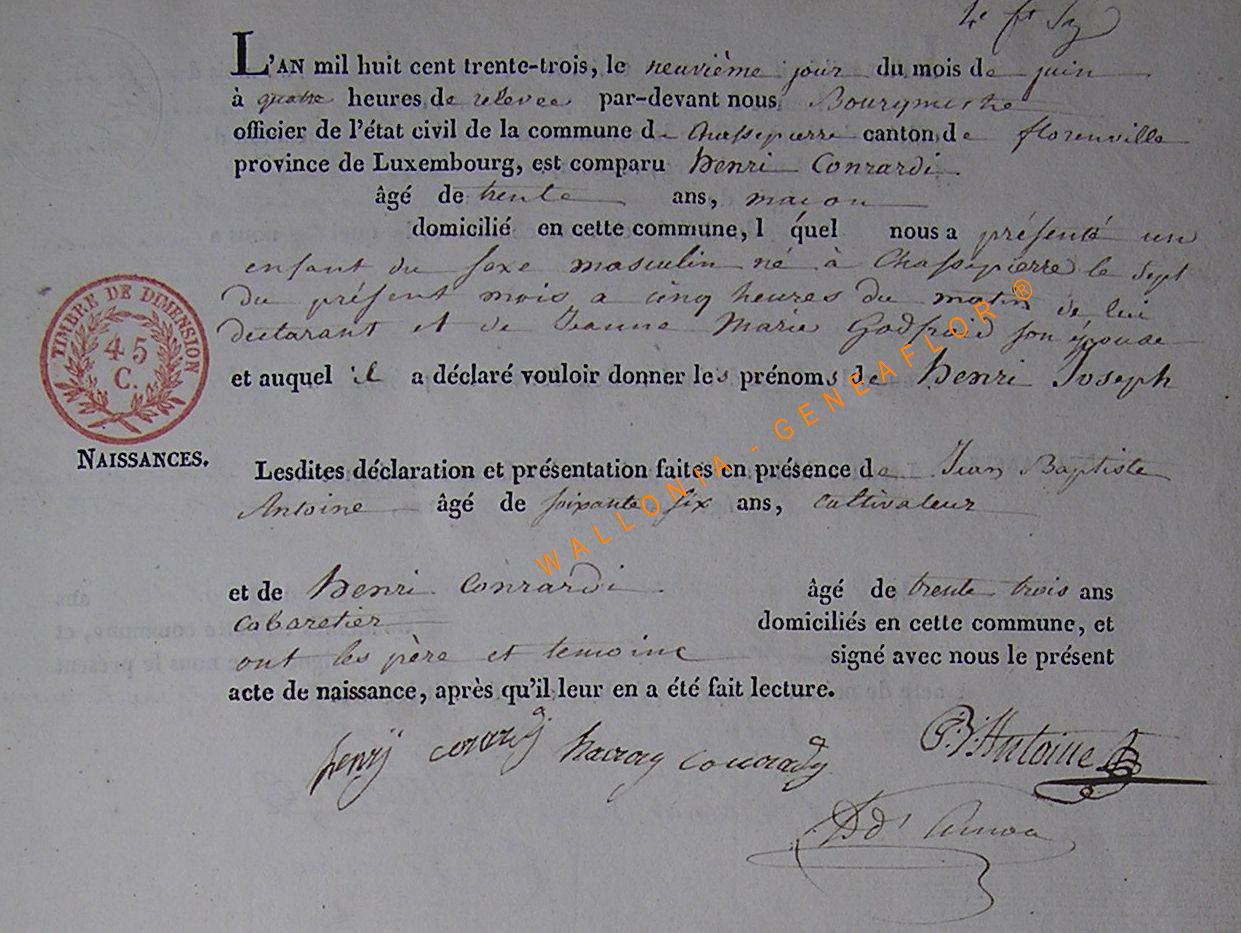 L'AN mil huit cent trente-trois, le neuvième jour du mois de juin
à quatre heures de relevee par-devant nous Bourgmestre
officier de l'état civil de la commune de Chassepierre canton de florenville
province de Luxembourg, est comparu henri Conrardi
âgé de trente ans, macon
domicilié en cette commune, l quel nous a présenté un
enfant du sexe masculin né à Chassepierre le sept
du présent mois a cinq heures du matin de lui
declarant et de Jeanne Marie Godfroid son épouse
et auquel il a déclaré vouloir donner les prénoms de henri Joseph
TIMBRE DE DIMENSION
45
C.
NAISSANCES.
Lesdites déclaration et présentation faites en présence de Jean Baptiste
Antoine âgé de soixante six ans, cultivateur
et de henri Conrardi âgé de trente trois ans
cabaretier domiciliés en cette commune, et
ont les père et temoins signé avec nous le présent
acte de naissance, après qu'il leur en a été fait lecture.
henrij conrardy
conrardy
Antoine
WALLONIA - GENEAFLOR ®